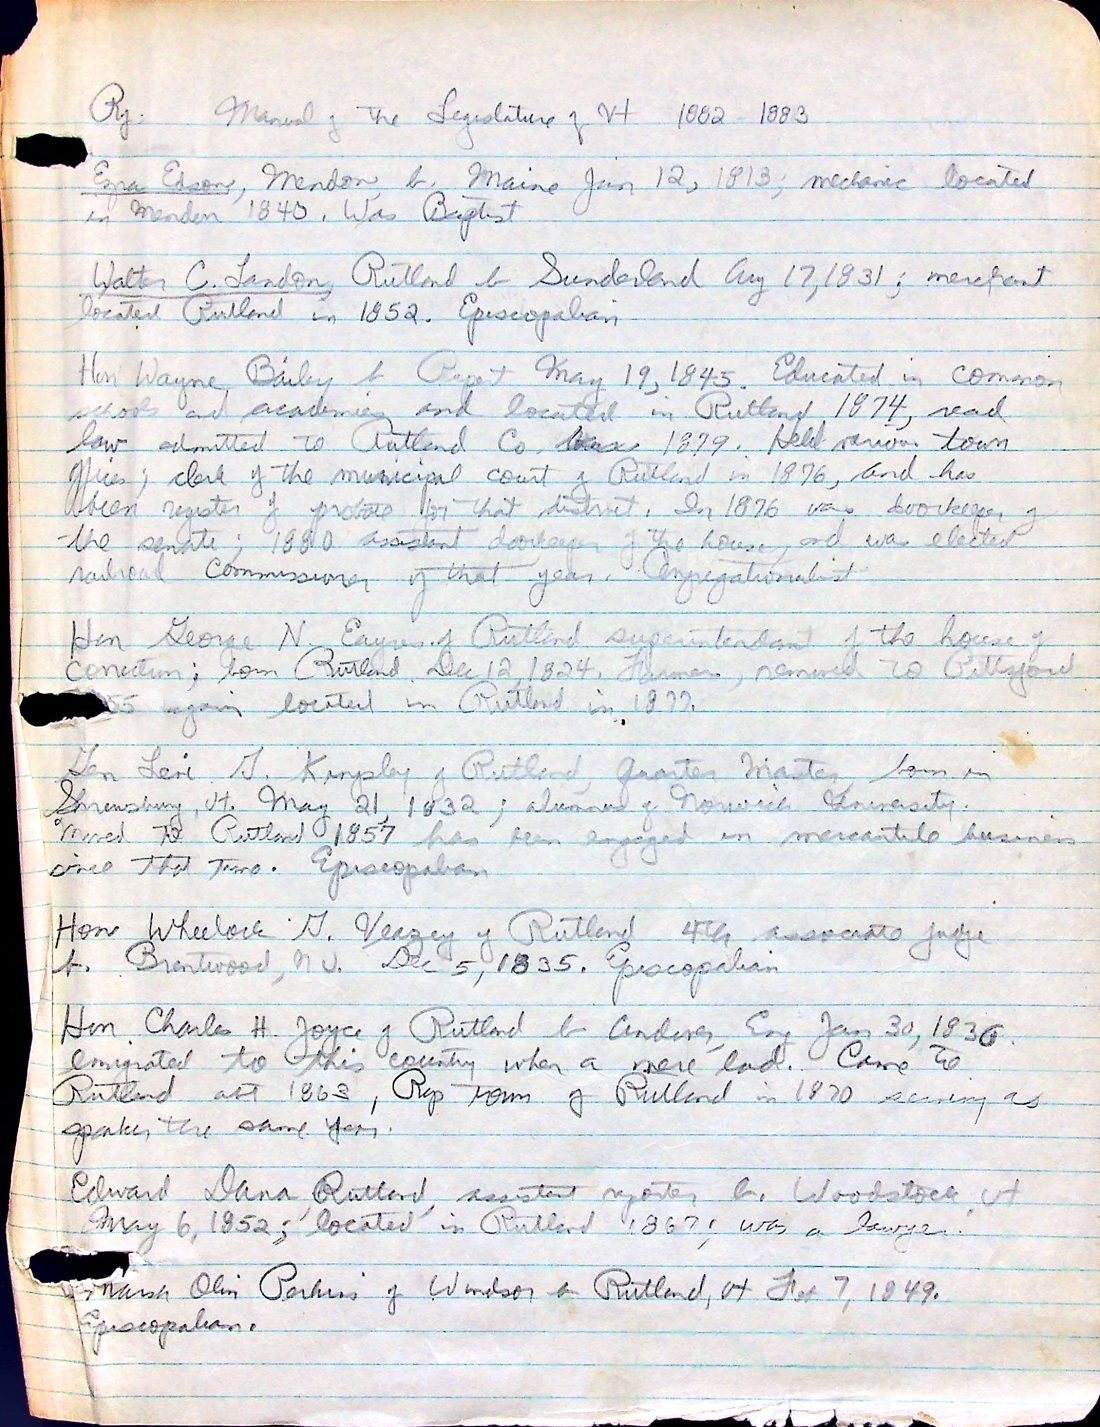 Manual of the Legislature of Vt 1882-1883
Ezra Edson, Mendon b. Maine Jan 12, 1813; mechanic located
in Mendon 1840. Was Baptist
Walter C. Landon, Rutland b Sunderland Aug 17, 1831; merchant
located Rutland in 1852. Episcopalian
Hon Wayne Bailey b May 19, 1845. Educated in common
schools and academies and located in Rutland 1874, read
law admitted to Rutland Co. 1879. Held various town
offices; clerk of the municipal court of Rutland in 1876, and has
been register of probate for that district. In 1876 was doorkeeper of
the senate; 1880 assistant doorkeeper of the house, and was elected
railroad commissioner of that year. Congregationalist
Hon George N. Eayres of Rutland superintendant of the house of
correction; born Rutland Dec 12, 1824. Farmer, removed to Pittsford
55 again located in Rutland in 1877.
Gen Levi G. Kingsley of Rutland, Quarter Master, born in
Shrewsbury, Vt. May 21, 1832; alumnus of Norwich University.
Moved to Rutland 1857 has been engaged in mercantile business
since that time. Episcopalian
Hon Wheelock G. Veazey of Rutland 4th associate judge
b. Brentwood, Dec 5, 1835. Episcopalian
Hon Charles H. Joyce of Rutland b Andover, Eng Jan 30, 1830.
emigrated to this country when a mere lad. Came to
Rutland abt 1863, Rep town of Rutland in 1870 serving as
speaker the same year.
Edward Dana, Rutland, assistant reporter b. Woodstock Vt
May 6, 1852; located in Rutland 1867; was a lawyer.
Marsh Olin Perkins of Windsor b Rutland, Vt Feb 7, 1849.
Episcopalian.